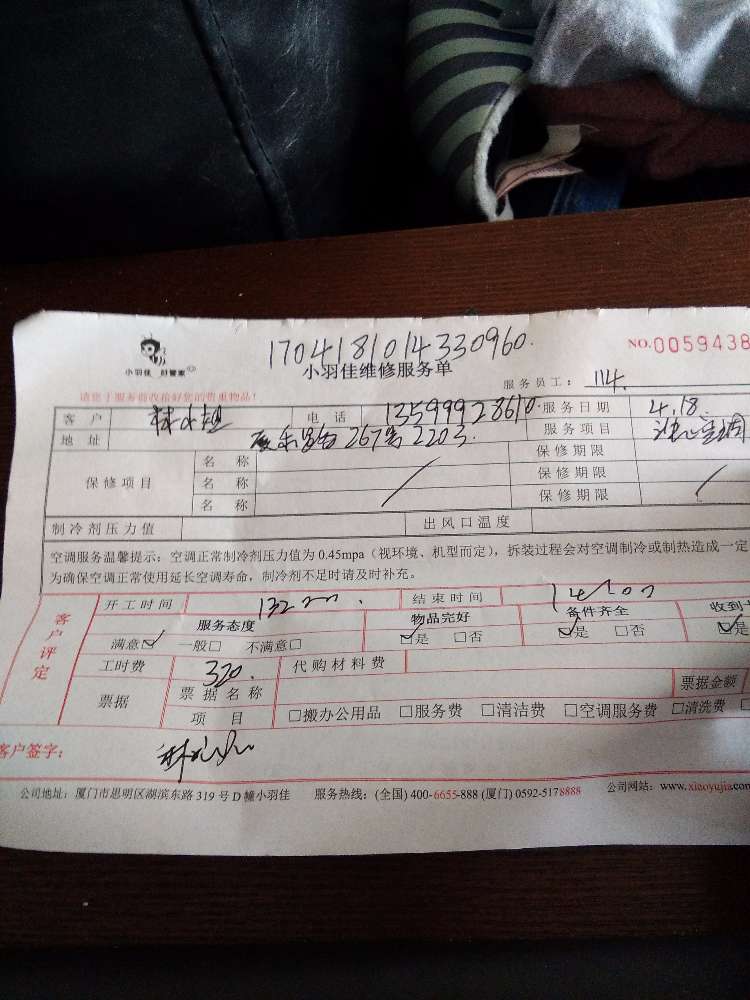 1704181014330960.
小羽佳 好管家
小羽佳维修服务单
NO.0059438
请您于服务前收拾好您的贵重物品!
服务员工: 114.
客户 林小姐 电话 13599928610. 服务日期 4.18.
地址 267号2203. 服务项目 洗空调
保修项目 名称 保修期限
名称 保修期限
名称 保修期限
制冷剂压力值 出风口温度
空调服务温馨提示:空调正常制冷剂压力值为 0.45mpa(视环境、机型而定),拆装过程会对空调制冷或制热造成一定
为确保空调正常使用延长空调寿命,制冷剂不足时请及时补充。
客户评定 开工时间 结束时间 14:00
服务态度 物品完好 备件齐全 收到
满意☑ 一般□ 不满意□ ☑是 □否 ☑是 □否 ☑是
工时费 320. 代购材料费
票据 票据名称 票据金额
项目 □搬办公用品 □服务费 □清洁费 □空调服务费 □清洗费
客户签字:
公司地址:厦门市思明区湖滨东路 319 号 D 幢小羽佳 服务热线:(全国) 400-6655-888 (厦门) 0592-5178888 公司网站:www.xiaoyujia.com